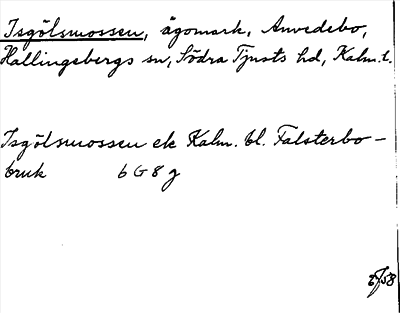 Isgölsmossen, ägomark, Anvedebo,
Hallingebergs sn, Södra Tjusts hd, Kalm. l.
Isgölsmossen ek Kalm. bl. Falsterbo-
bruk 6 G 8 g